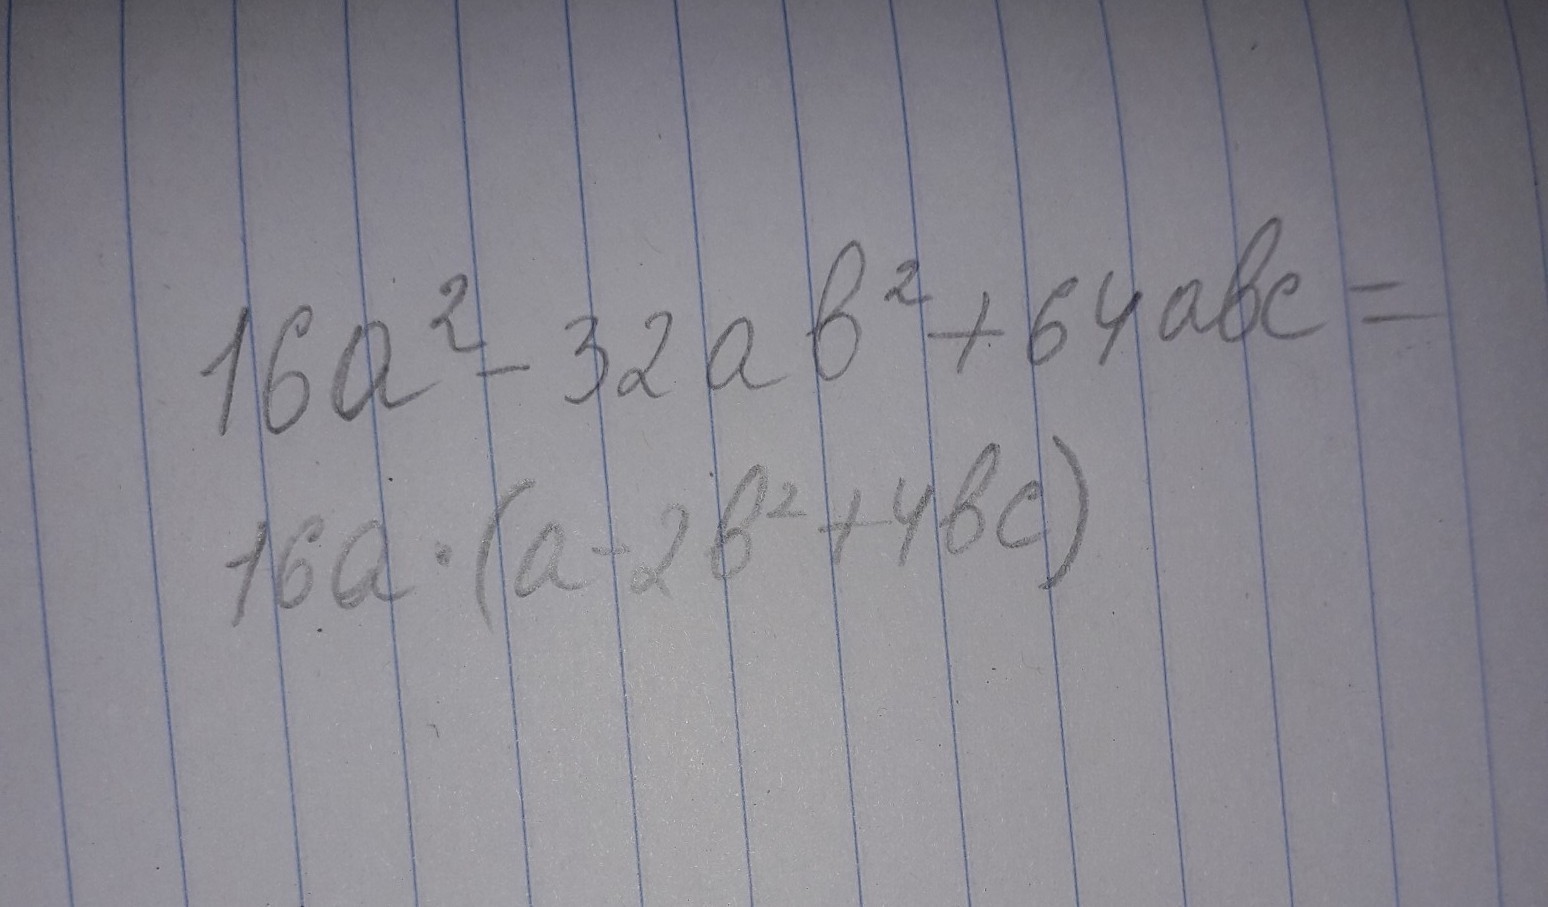 16a² - 32ab² + 64abc =
16a · (a - 2b² + 4bc)